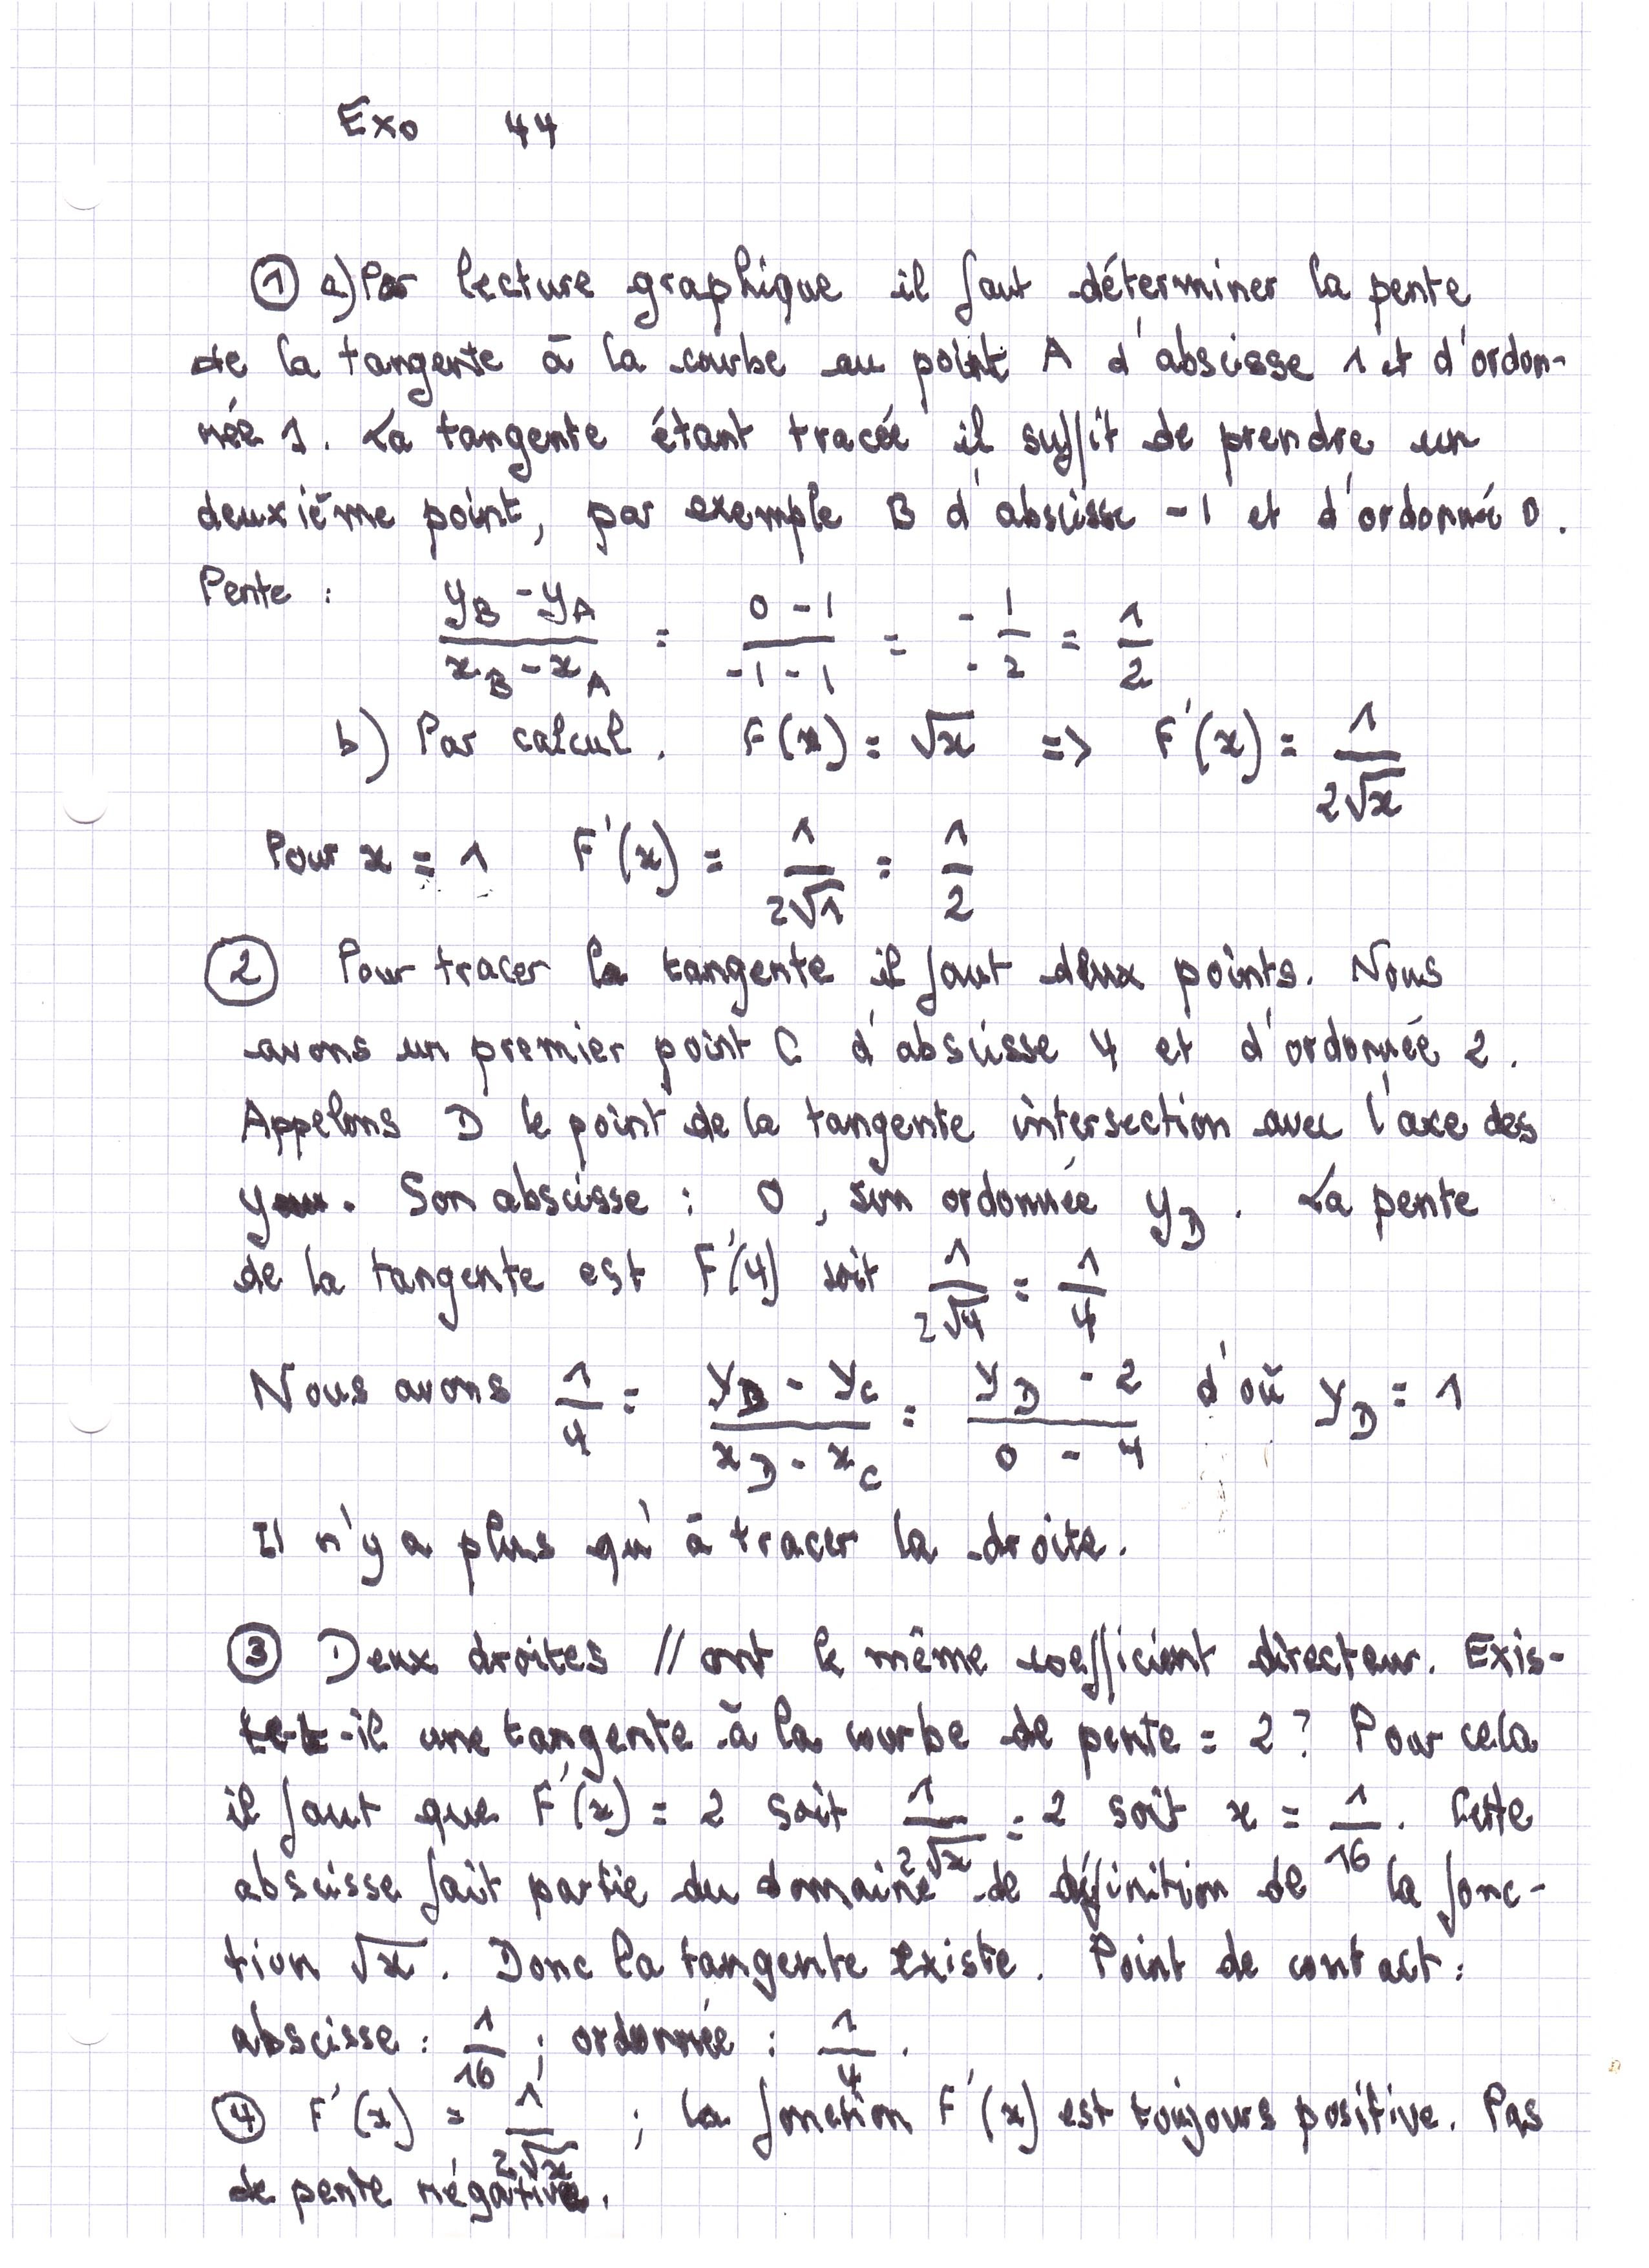 Exo 44
① a) Par lecture graphique il faut déterminer la pente
de la tangente à la courbe au point A d'abscisse 1 et d'ordon-
née 1. La tangente étant tracée il suffit de prendre un
deuxième point, par exemple B d'abscisse -1 et d'ordonnée 0.
Pente : (yB - yA)/(xB - xA) = (0 - 1)/(-1 - 1) = (-1)/(-2) = 1/2
b) Par calcul. F(x) = √x => F'(x) = 1/(2√x)
Pour x = 1 F'(x) = 1/(2√1) = 1/2
② Pour tracer la tangente il faut deux points. Nous
avons un premier point C d'abscisse 4 et d'ordonnée 2.
Appelons D le point de la tangente intersection avec l'axe des
y. Son abscisse : 0, son ordonnée yD. La pente
de la tangente est F'(4) soit 1/(2√4) = 1/4
Nous avons 1/4 = (yD - yC)/(xD - xC) = (yD - 2)/(0 - 4) d'où yD = 1
Il n'y a plus qu'à tracer la droite.
③ Deux droites // ont le même coefficient directeur. Exis-
te-t-il une tangente à la courbe de pente = 2? Pour cela
il faut que F'(x) = 2 soit 1/(2√x) = 2 soit x = 1/16. Cette
abscisse fait partie du domaine de définition de la fonc-
tion √x. Donc la tangente existe. Point de contact :
abscisse : 1/16 ; ordonnée : 1/4.
④ F'(x) = 1/(2√x) ; la fonction F'(x) est toujours positive. Pas
de pente négative.